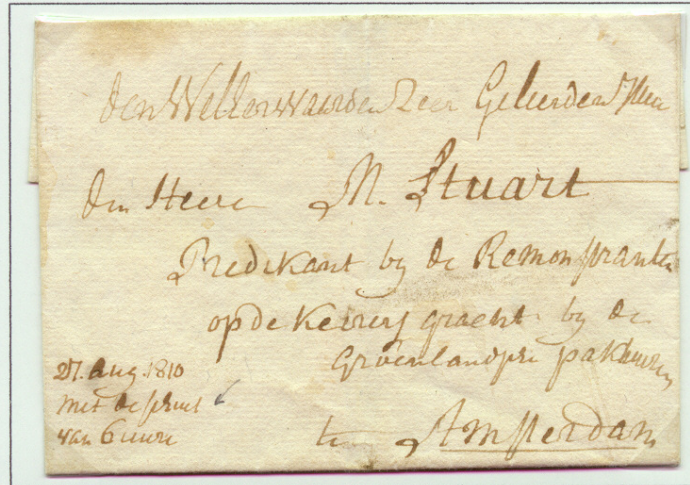 den WelEerwaarden Zeer Geleerden Heer
den Heere M. Stuart
Predikant by de Remonstranten
op de Keizers gracht by de
Groenlandsche pakhuizen
te Amsterdam
27. Aug. 1810
met de schuit
van 6 uure